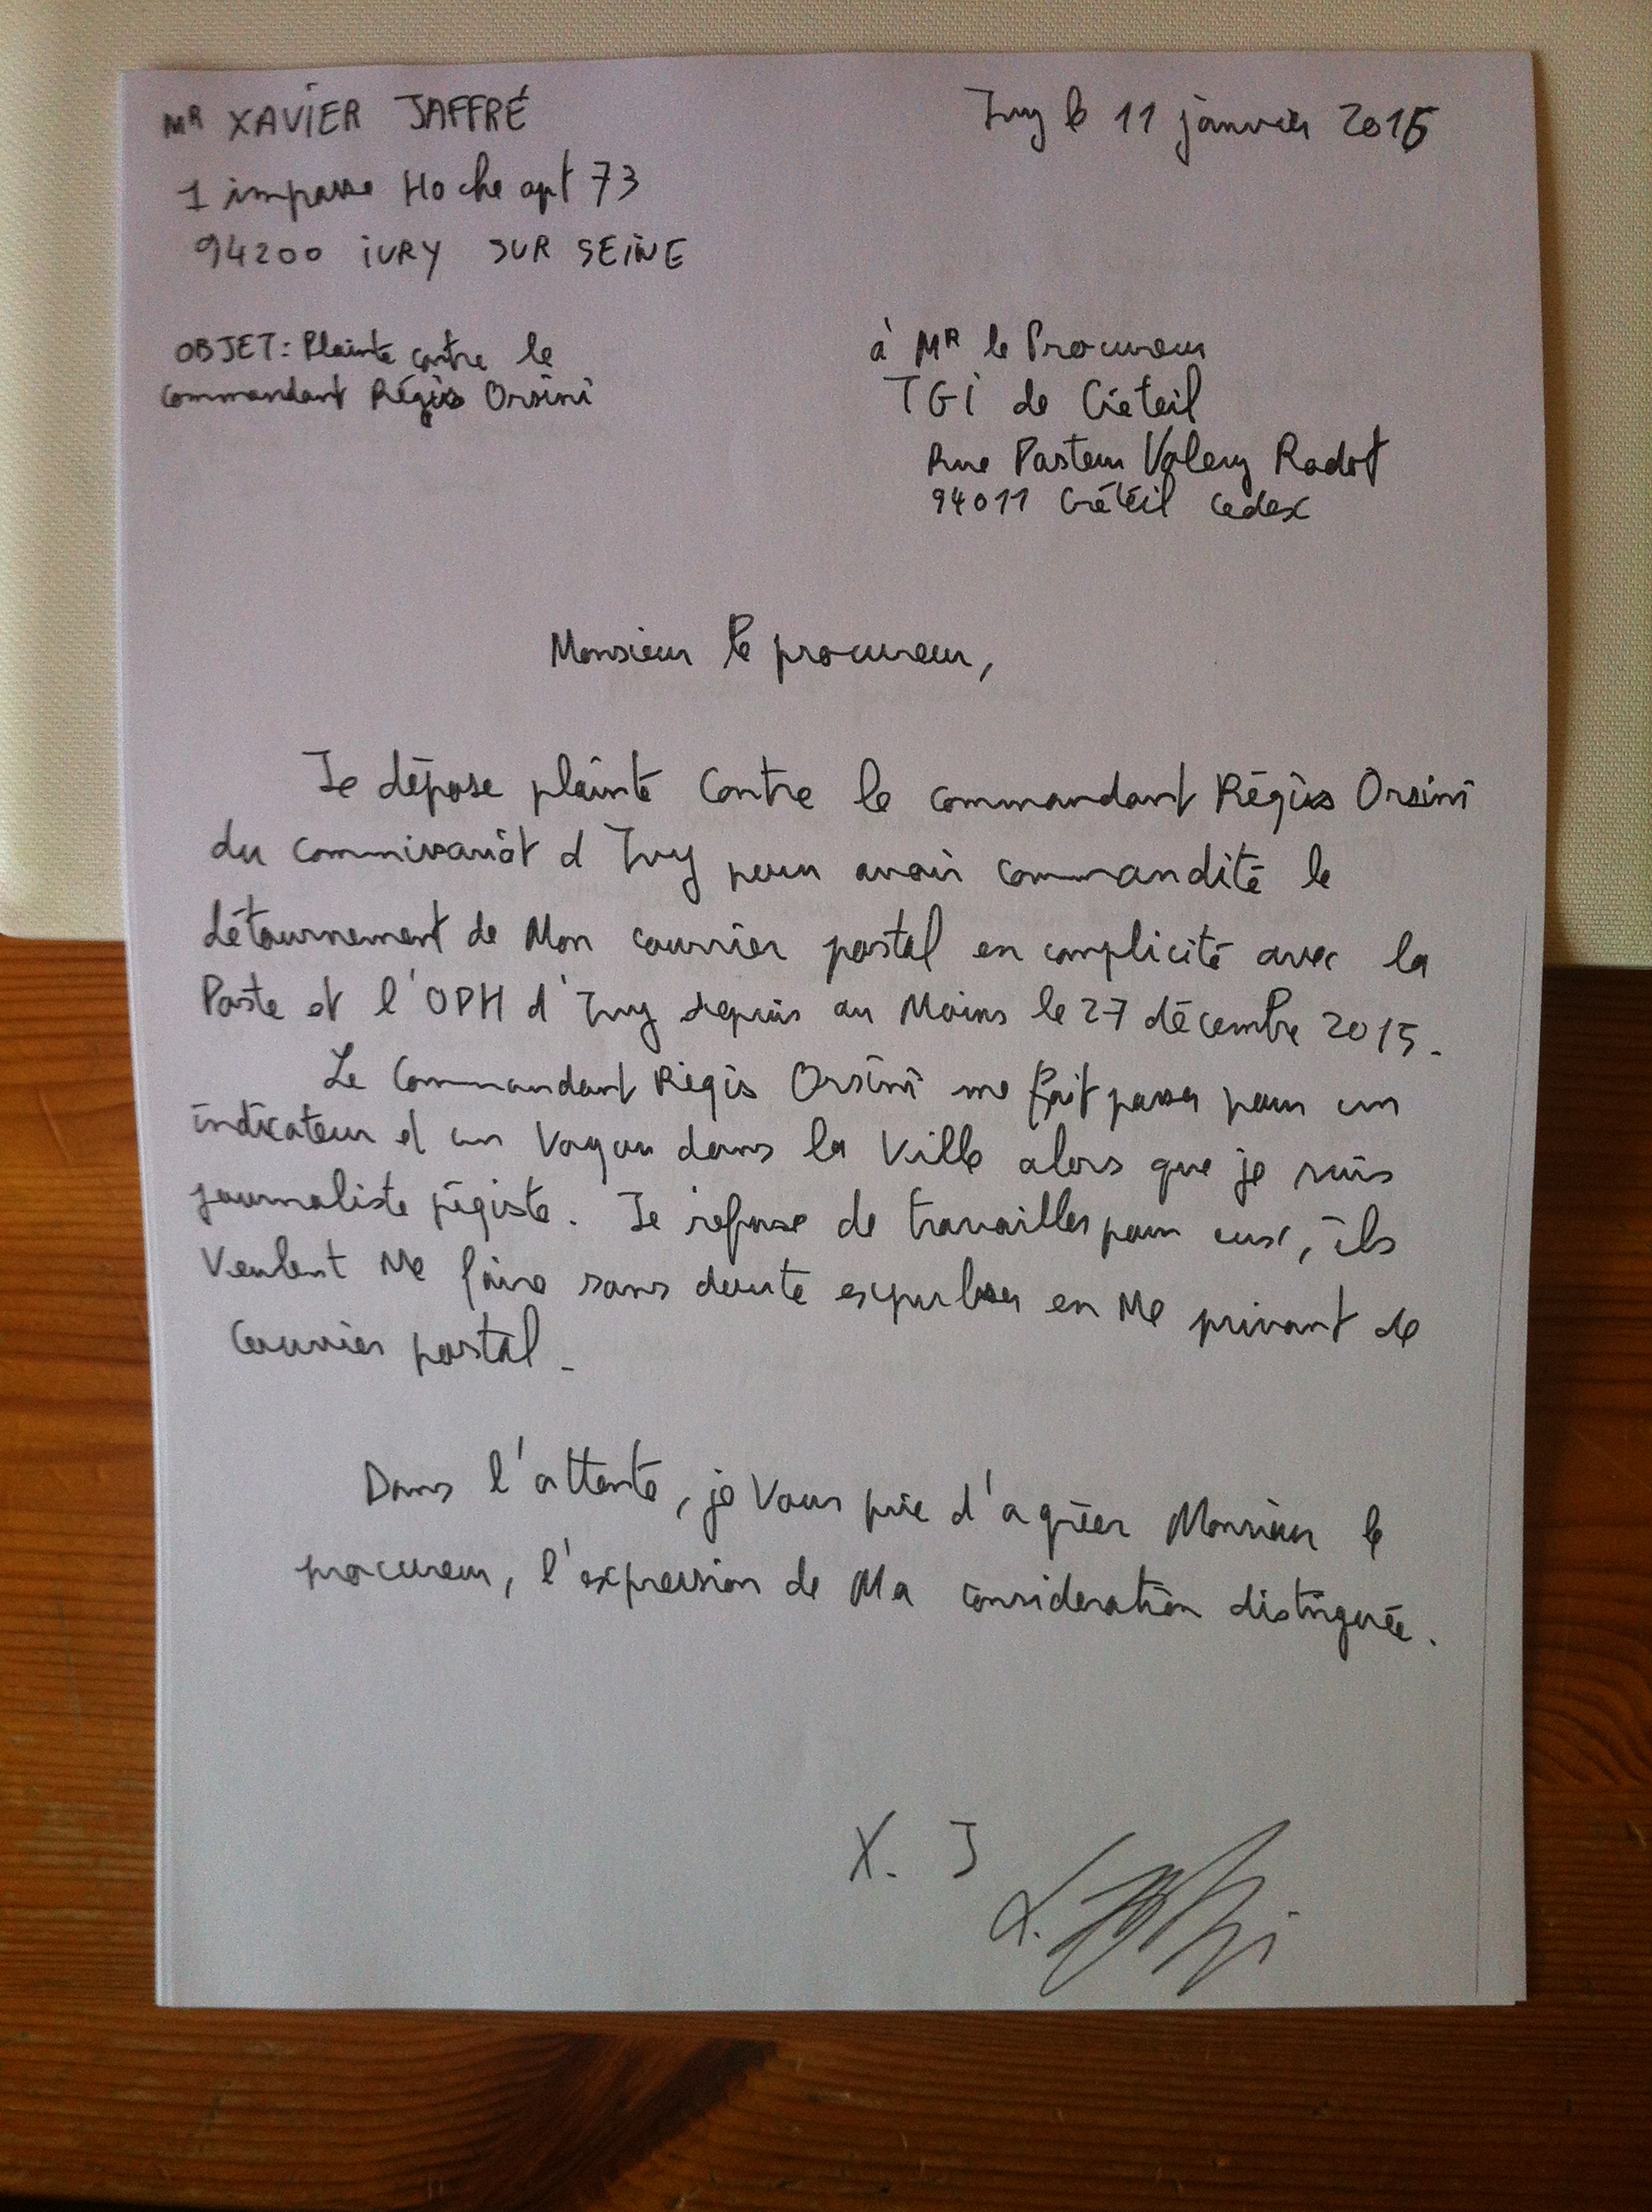 MR XAVIER JAFFRÉ
Ivry le 11 janvier 2016
1 impasse Hoche apt 73
94200 IVRY SUR SEINE
OBJET: Plainte contre le
commandant Régis Orsini
à MR le Procureur
TGI de Créteil
Rue Pasteur Valery Radot
94011 Créteil cedex
Monsieur le procureur,
Je dépose plainte contre le commandant Régis Orsini
du commissariat d Ivry pour avoir commandité le
détournement de Mon courrier postal en complicité avec la
Poste et l'OPH d'Ivry depuis au Moins le 27 décembre 2015.
Le Commandant Régis Orsini me fait passer pour un
indicateur et un Voyou dans la Ville alors que je suis
journaliste pigiste. Je refuse de travailler pour eux, ils
Veulent Me faire sans doute expulser en Me privant de
Courrier postal.
Dans l'attente, je Vous prie d'agréer Monsieur le
procureur, l'expression de Ma consideration distinguée.
X. J